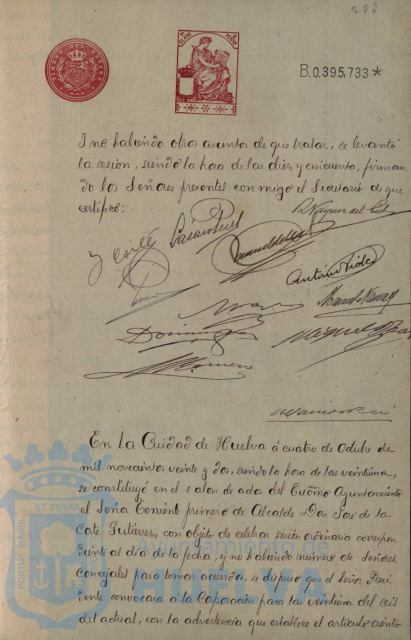 202
TIMBRE DEL ESTADO
CLASE
B.0.395,733*
I no habiendo otros asuntos de que tratar, se levantó
la sesión, siendo la hora de las diez y cincuenta, firman
do los Señores presentes conmigo el Secretario de que
certifico:
Antonio
Manuel
Dominguez
Romero
En la Ciudad de Huelva á cuatro de Octubre de
mil novecientos veinte y dos, siendo la hora de las veintiuna,
se constituyó en el salon de actos del Excmo Ayuntamiento
el Señor Teniente primero de Alcalde Don José de la
Corte Gutierrez, con objeto de celebrar sesión ordinaria correspon
diente al día de la fecha, y no habiendo número de Señores
Concejales para tomar acuerdos, se dispuso que el Señor Presi
dente convocara á la Corporación para las veintiuna del seis
del actual, con la advertencia que establece el artículo ciento
ET TERRÆ
PORTUS MARIS
Ayuntamiento de